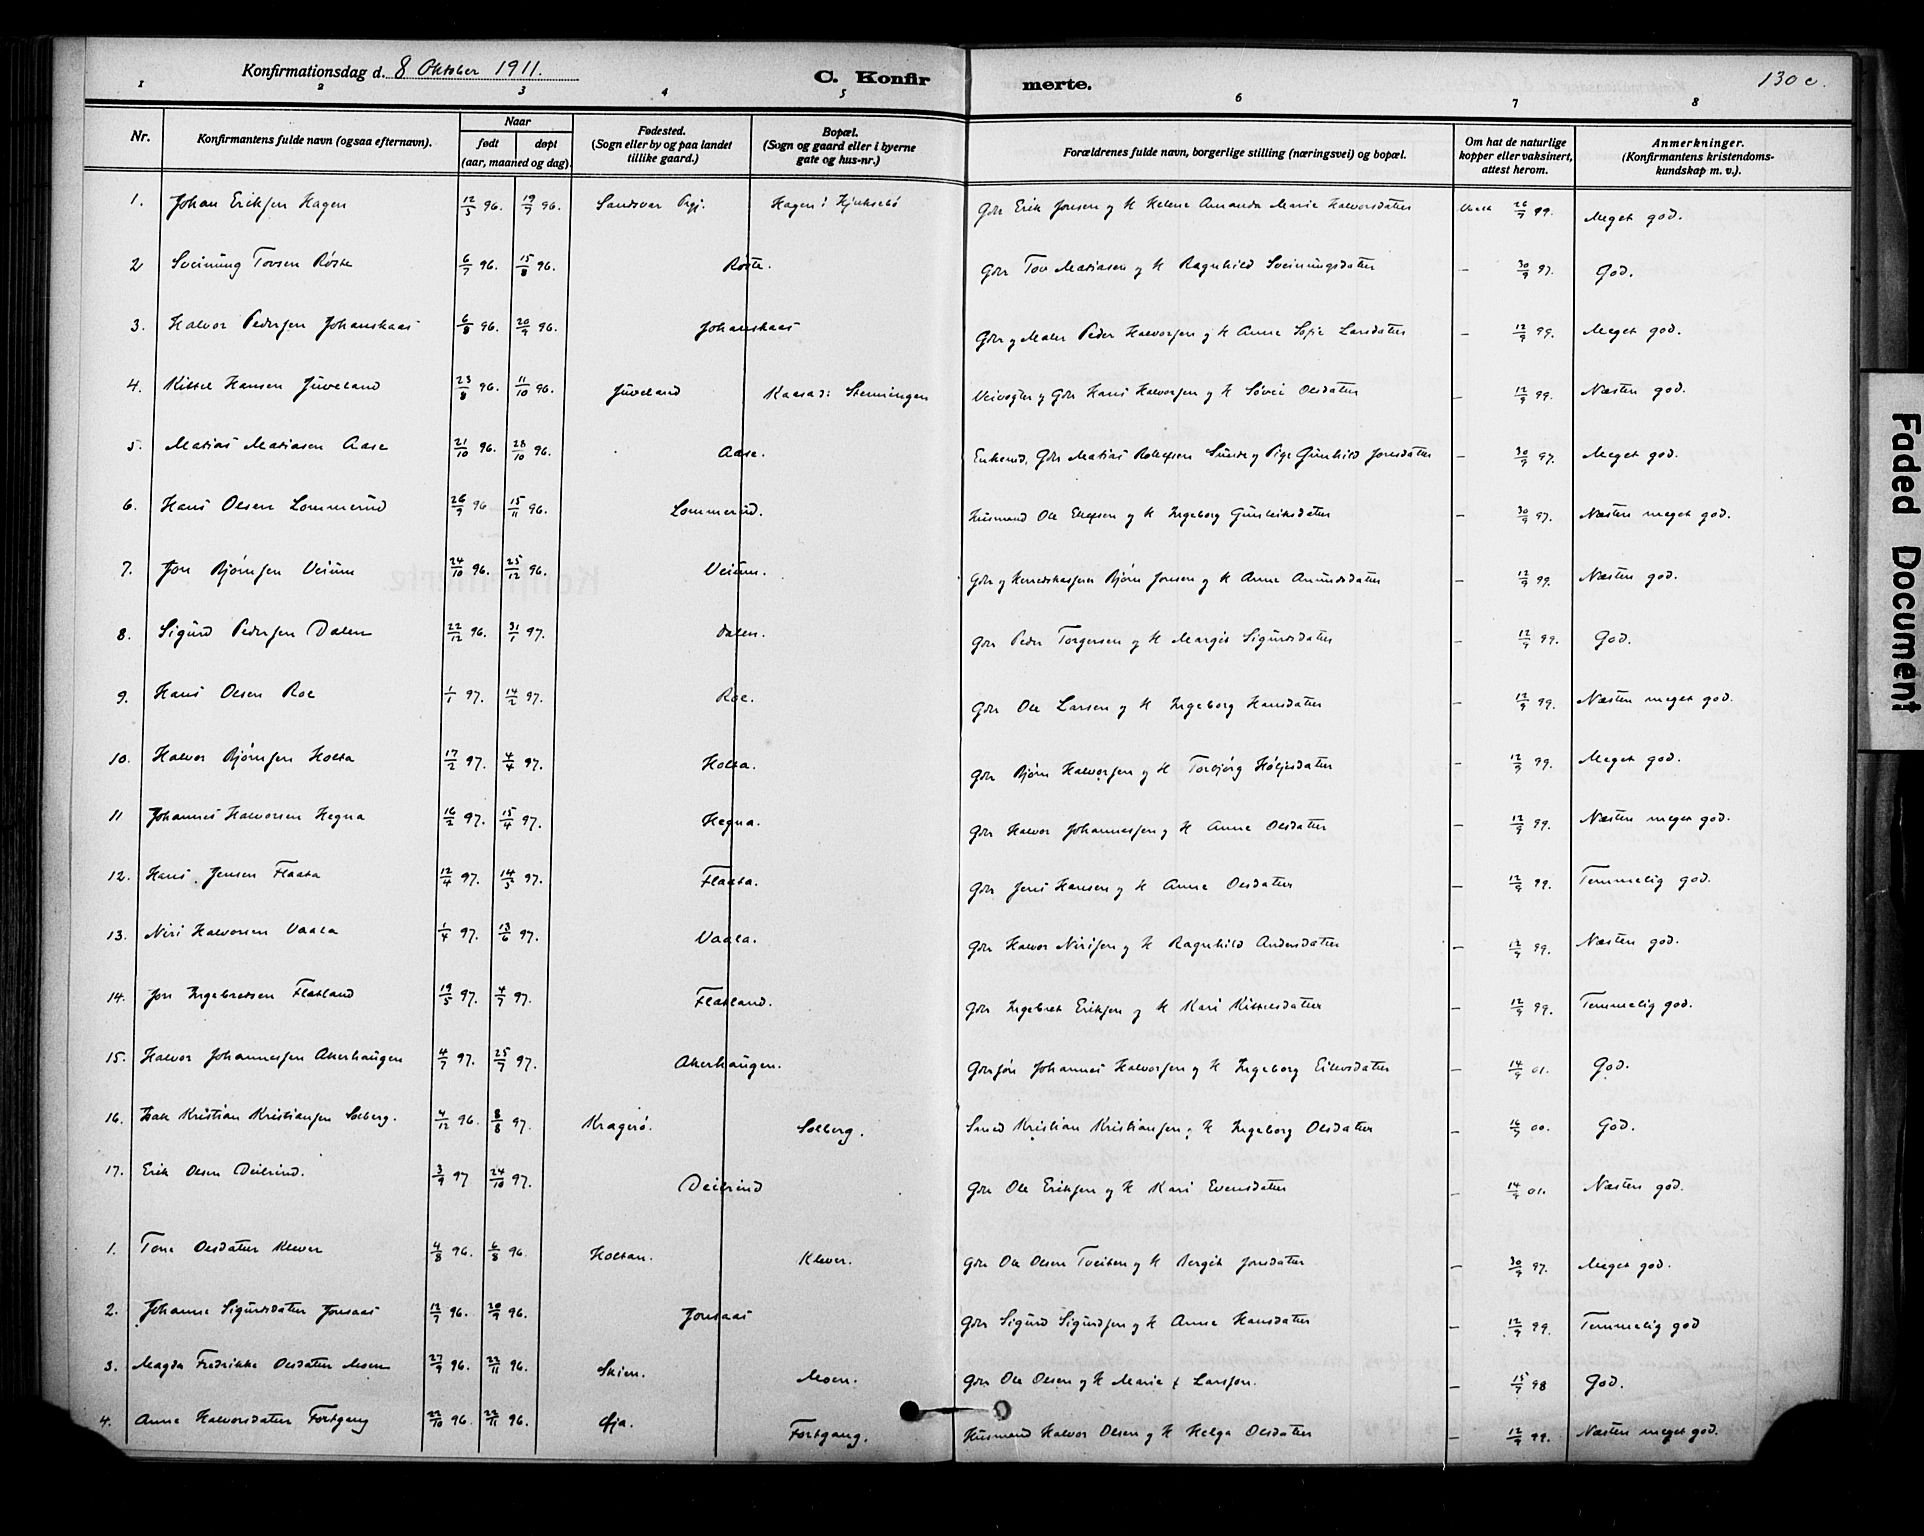 Konfirmationsdag d. 8 Oktober 1911.
C. Konfirmerte.
130 c.
1 2 3 4 5 6 7 8
Nr. Konfirmantens fulde navn (ogsaa efternavn). Naar født døpt (aar, maaned og dag). Fødested. (Sogn eller by og paa landet tillike gaard.) Bopæl. (Sogn og gaard eller i byerne gate og hus-nr.) Forældrenes fulde navn, borgerlige stilling (næringsvei) og bopæl. Om hat de naturlige kopper eller vaksinert, attest herom. Anmerkninger. (Konfirmantens kristendomskundskap m. v.).
1. Johan Eriksen Hagen 12/5 96. 19/7 96. Sandsvær Prgj. Hagen i Hjuksebø Gbr Erik Jonsen og H Helene Amanda Marie Halvorsdatter 26/9 99. Meget god.
2 Sveinung Tovsen Røste 6/7 96. 15/8 96. Røste. Gbr Tov Matiasen og H Ragnhild Sveinungsdatter – 30/9 97. God.
3. Halvor Pedersen Johanskaas 6/8 96. 20/9 96. Johanskaas Gbr og Maler Peder Halvorsen og H Anne Sofie Larsdatter – 12/9 99. Meget god.
4. Kittel Hansen Juveland 23/8 96. 11/10 96. Juveland Kaasa i Stenningen Veivogter og Gbr Hans Halvorsen og H Søvei Olsdatter – 12/9 99. Næsten god.
5. Matias Matiasen Aase 21/10 96. 28/10 96. Aase. Enkemd. Gbr Matias Rollefsen Sunde og Pige Gunhild Jonsdatter – 30/9 97. Meget god.
6. Hans Olsen Lommerud 26/9 96 15/11 96. Lommerud. Husmand Ole Ellefsen og H Ingeborg Gunleiksdatter – 30/9 97. Næsten meget god.
7. Jon Bjørnsen Veium 24/10 96. 25/12 96. Veium. Gbr og Herredskasserer Bjørn Jonsen og H Anne Amundsdatter – 12/9 99. Næsten god.
8. Sigurd Pedersen Dalen 22/12 96. 31/1 97. Dalen. Gbr Peder Torgersen og H Margit Sigurdsdatter – 12/9 99. God.
9. Hans Olsen Roe 1/1 97. 14/2 97. Roe. Gbr Ole Larsen og H Ingeborg Hansdatter – 12/9 99. Næsten meget god.
10. Halvor Bjørnsen Holta 17/2 97. 4/4 97. Holta. Gbr Bjørn Halvorsen og H Torbjørg Høljesdatter – 12/9 99. Meget god.
11 Johannes Halvorsen Hegna 16/2 97. 15/4 97. Hegna. Gbr Halvor Johannesen og H Anne Olsdatter – 12/9 99. Næsten meget god.
12. Hans Jensen Flaata 12/4 97. 14/5 97. Flaata. Gbr Jens Hansen og H Anne Olsdatter – 12/9 99. Temmelig god.
13. Niri Halvorsen Vaala 1/4 97. 13/6 97. Vaala. Gbr Halvor Nirisen og H Ragnhild Andersdatter – 12/9 99. Næsten god.
14. Jon Ingebretsen Flatland 19/5 97. 4/7 97. Flatland. Gbr Ingebret Eriksen og H Kari Kittelsdatter – 12/9 99. Temmelig god.
15. Halvor Johannesen Akerhaugen 4/7 97. 25/7 97. Akerhaugen. Johannes Halvorsen og H Ingeborg Eilevsdatter – 14/9 01. God.
16. Isak Kristian Kristiansen Solberg. 4/12 96. 8/8 97. Kragerø. Solberg. Smed Kristian Kristiansen og H Ingeborg Olsdatter – 00. God.
17. Erik Olsen Deilrind. 3/9 97 24/10 97. Deilrind Gbr Ole Eriksen og H Kari Evensdatter – 14/9 01. Næsten god.
1. Tone Olsdatter Klever 4/8 96. 6/8 96. Holtan. Klever. Gbr Ole Olsen Tveiten og H Bergit Jonsdatter – 30/9 97. Meget god.
2. Johanne Sigurdsdatter Jonsaas 12/7 96. 20/9 96. Jonsaas Gbr Sigurd Sigurdsen og H Anne Hansdatter – 12/9 99. Temmelig god
3. Magda Fredrikke Olsdatter Moen 27/9 96. 22/11 96. Skien. Moen. Gbr Ole Olsen og H Marie f Larssen. – 15/9 98 God.
4. Anna Halvorsdatter Fortgang 22/10 96. 22/11 96. Øja. Fortgang. Husmand Halvor Olsen og H Helga Olsdatter – 12/9 99. Næsten meget god.
Faded Document